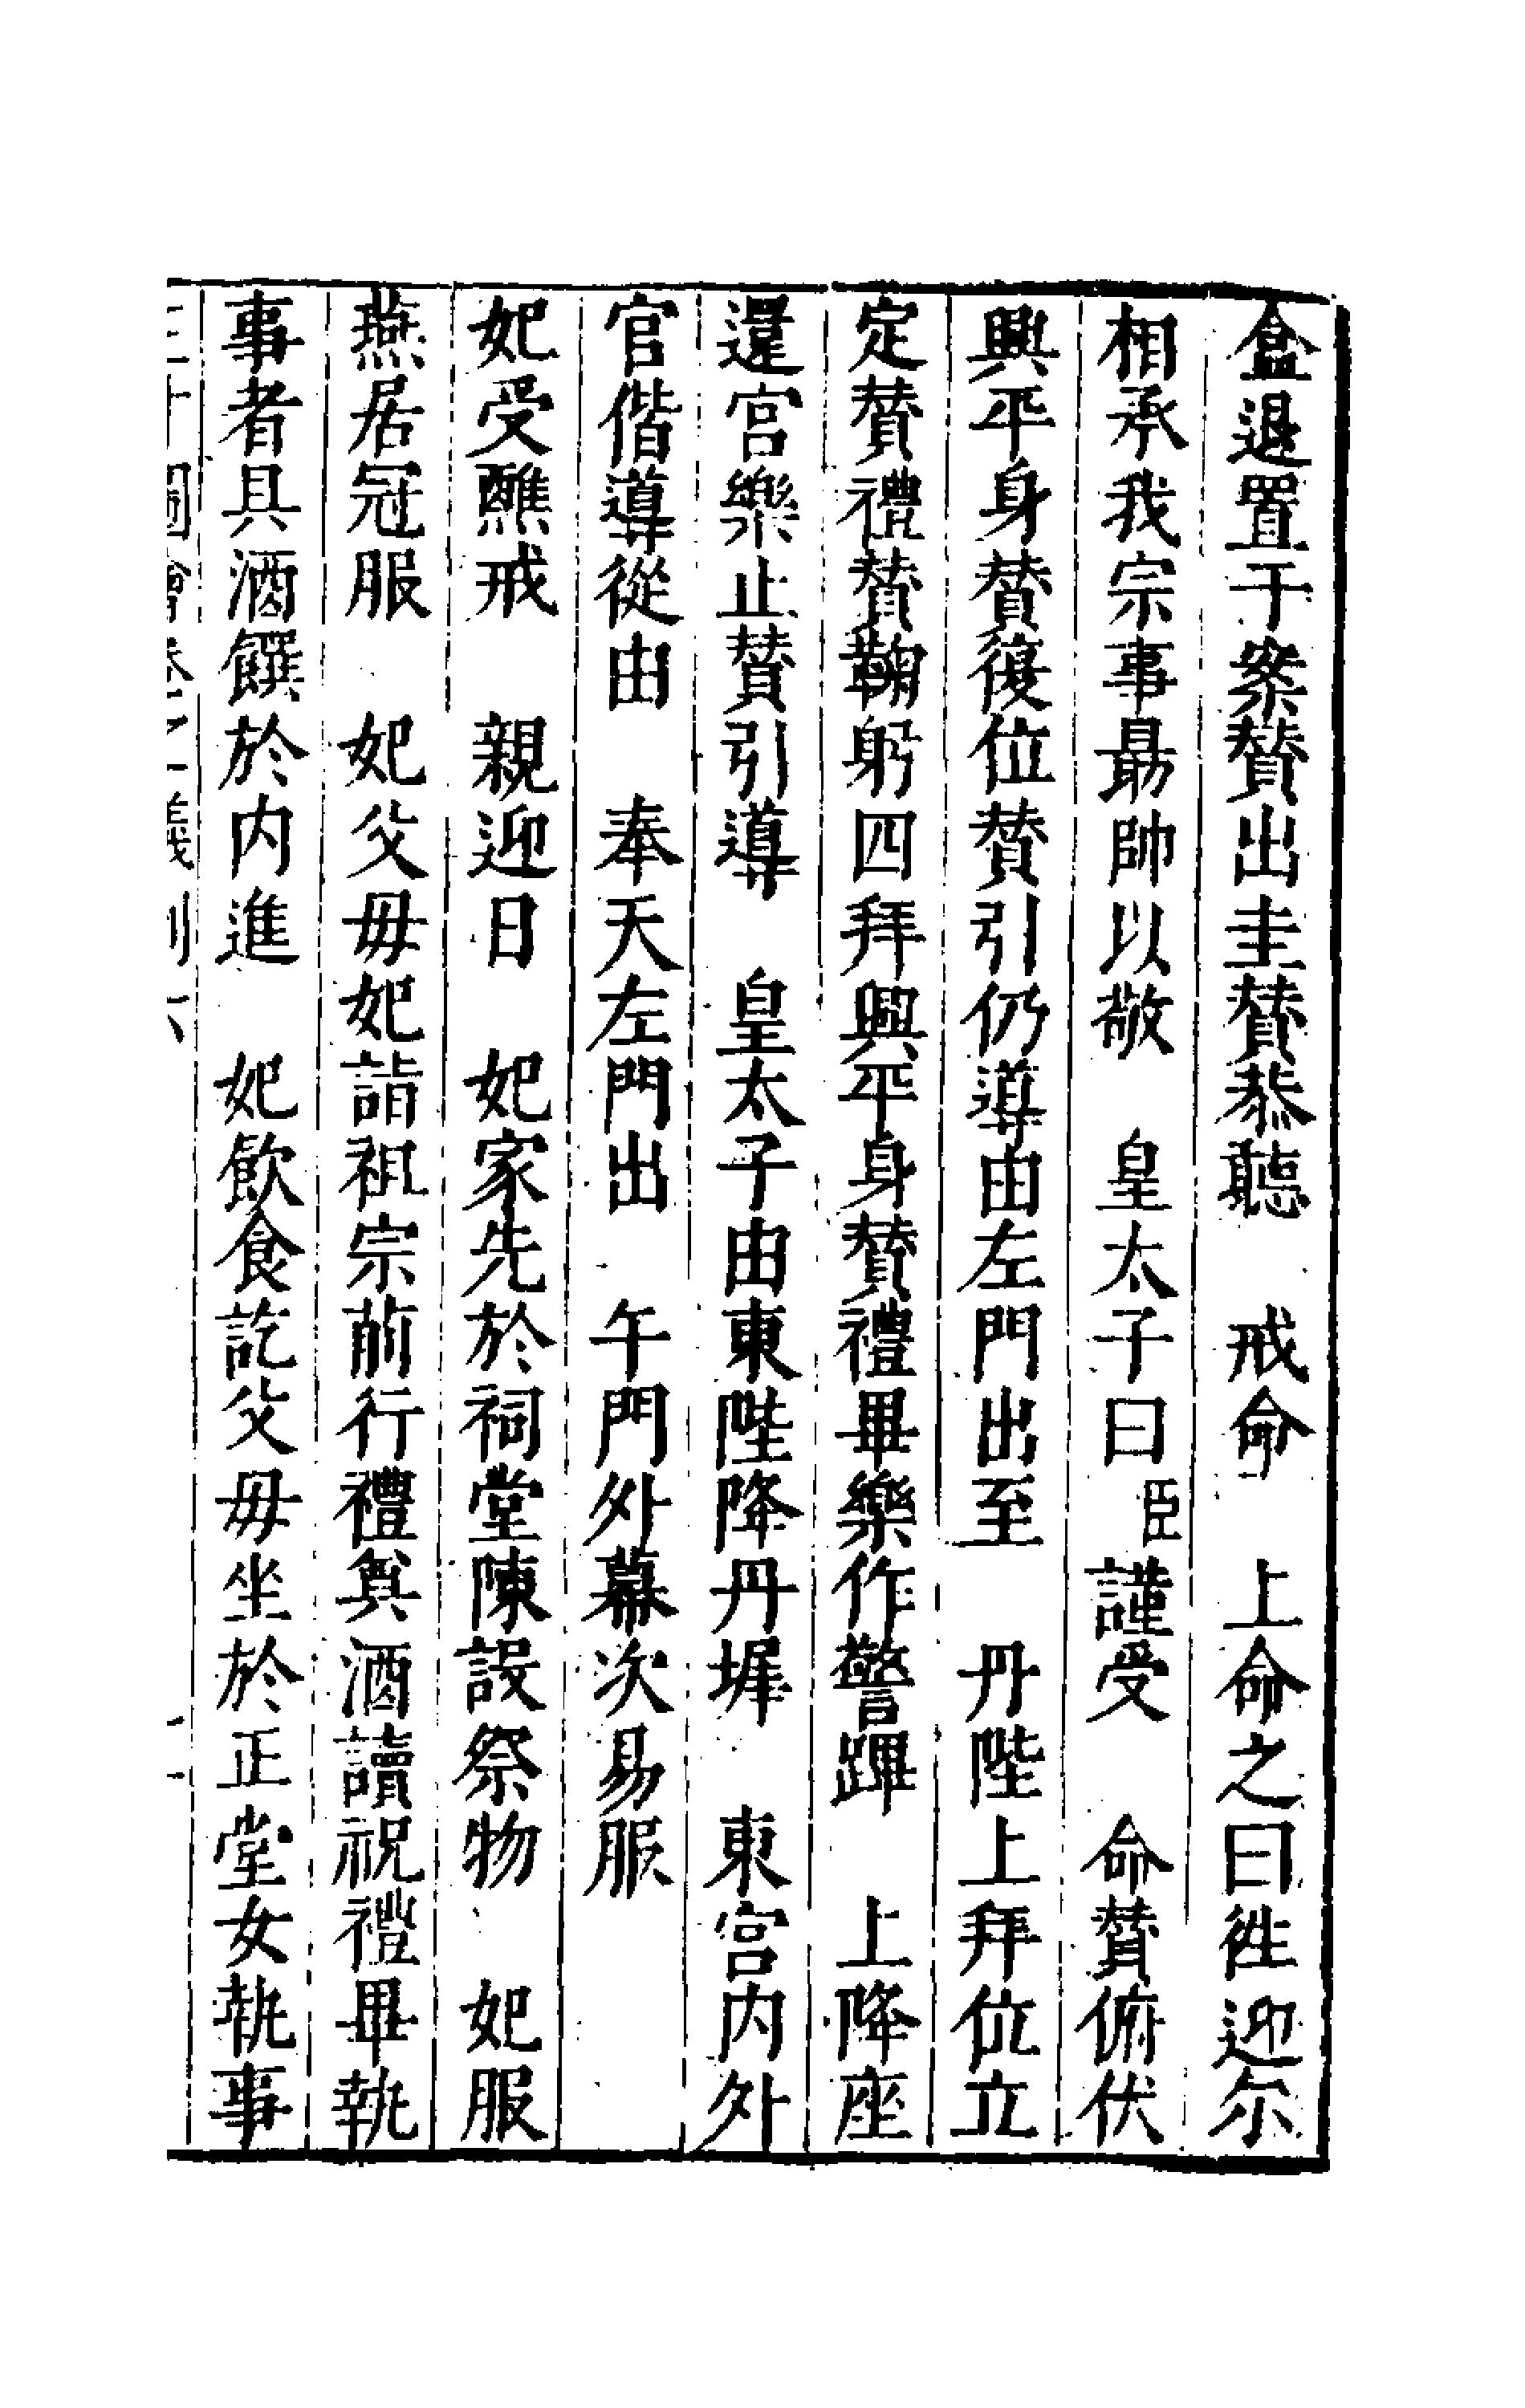 盒退置于案贊出圭贊恭聽　戒命　上命之曰徃迎尔
相承我宗事最帥以敬　皇太子曰臣謹受　命贊俯伏
興平身贊復位贊引仍導由左門出至　丹陛上拜位立
定贊禮贊鞠躬四拜興平身贊禮畢樂作警蹕　上降座
還宮樂止贊引導　皇太子由東陛降丹墀　東宮内外
官偕導從由　奉天左門出　午門外幕次易服
妃受醮戒　親迎日　妃家先於祠堂陳設祭物　妃服
燕居冠服　妃父母妃詣祖宗前行禮奠酒讀祝禮畢執
事者具酒饌於内進　妃飲食訖父母坐於正堂女執事